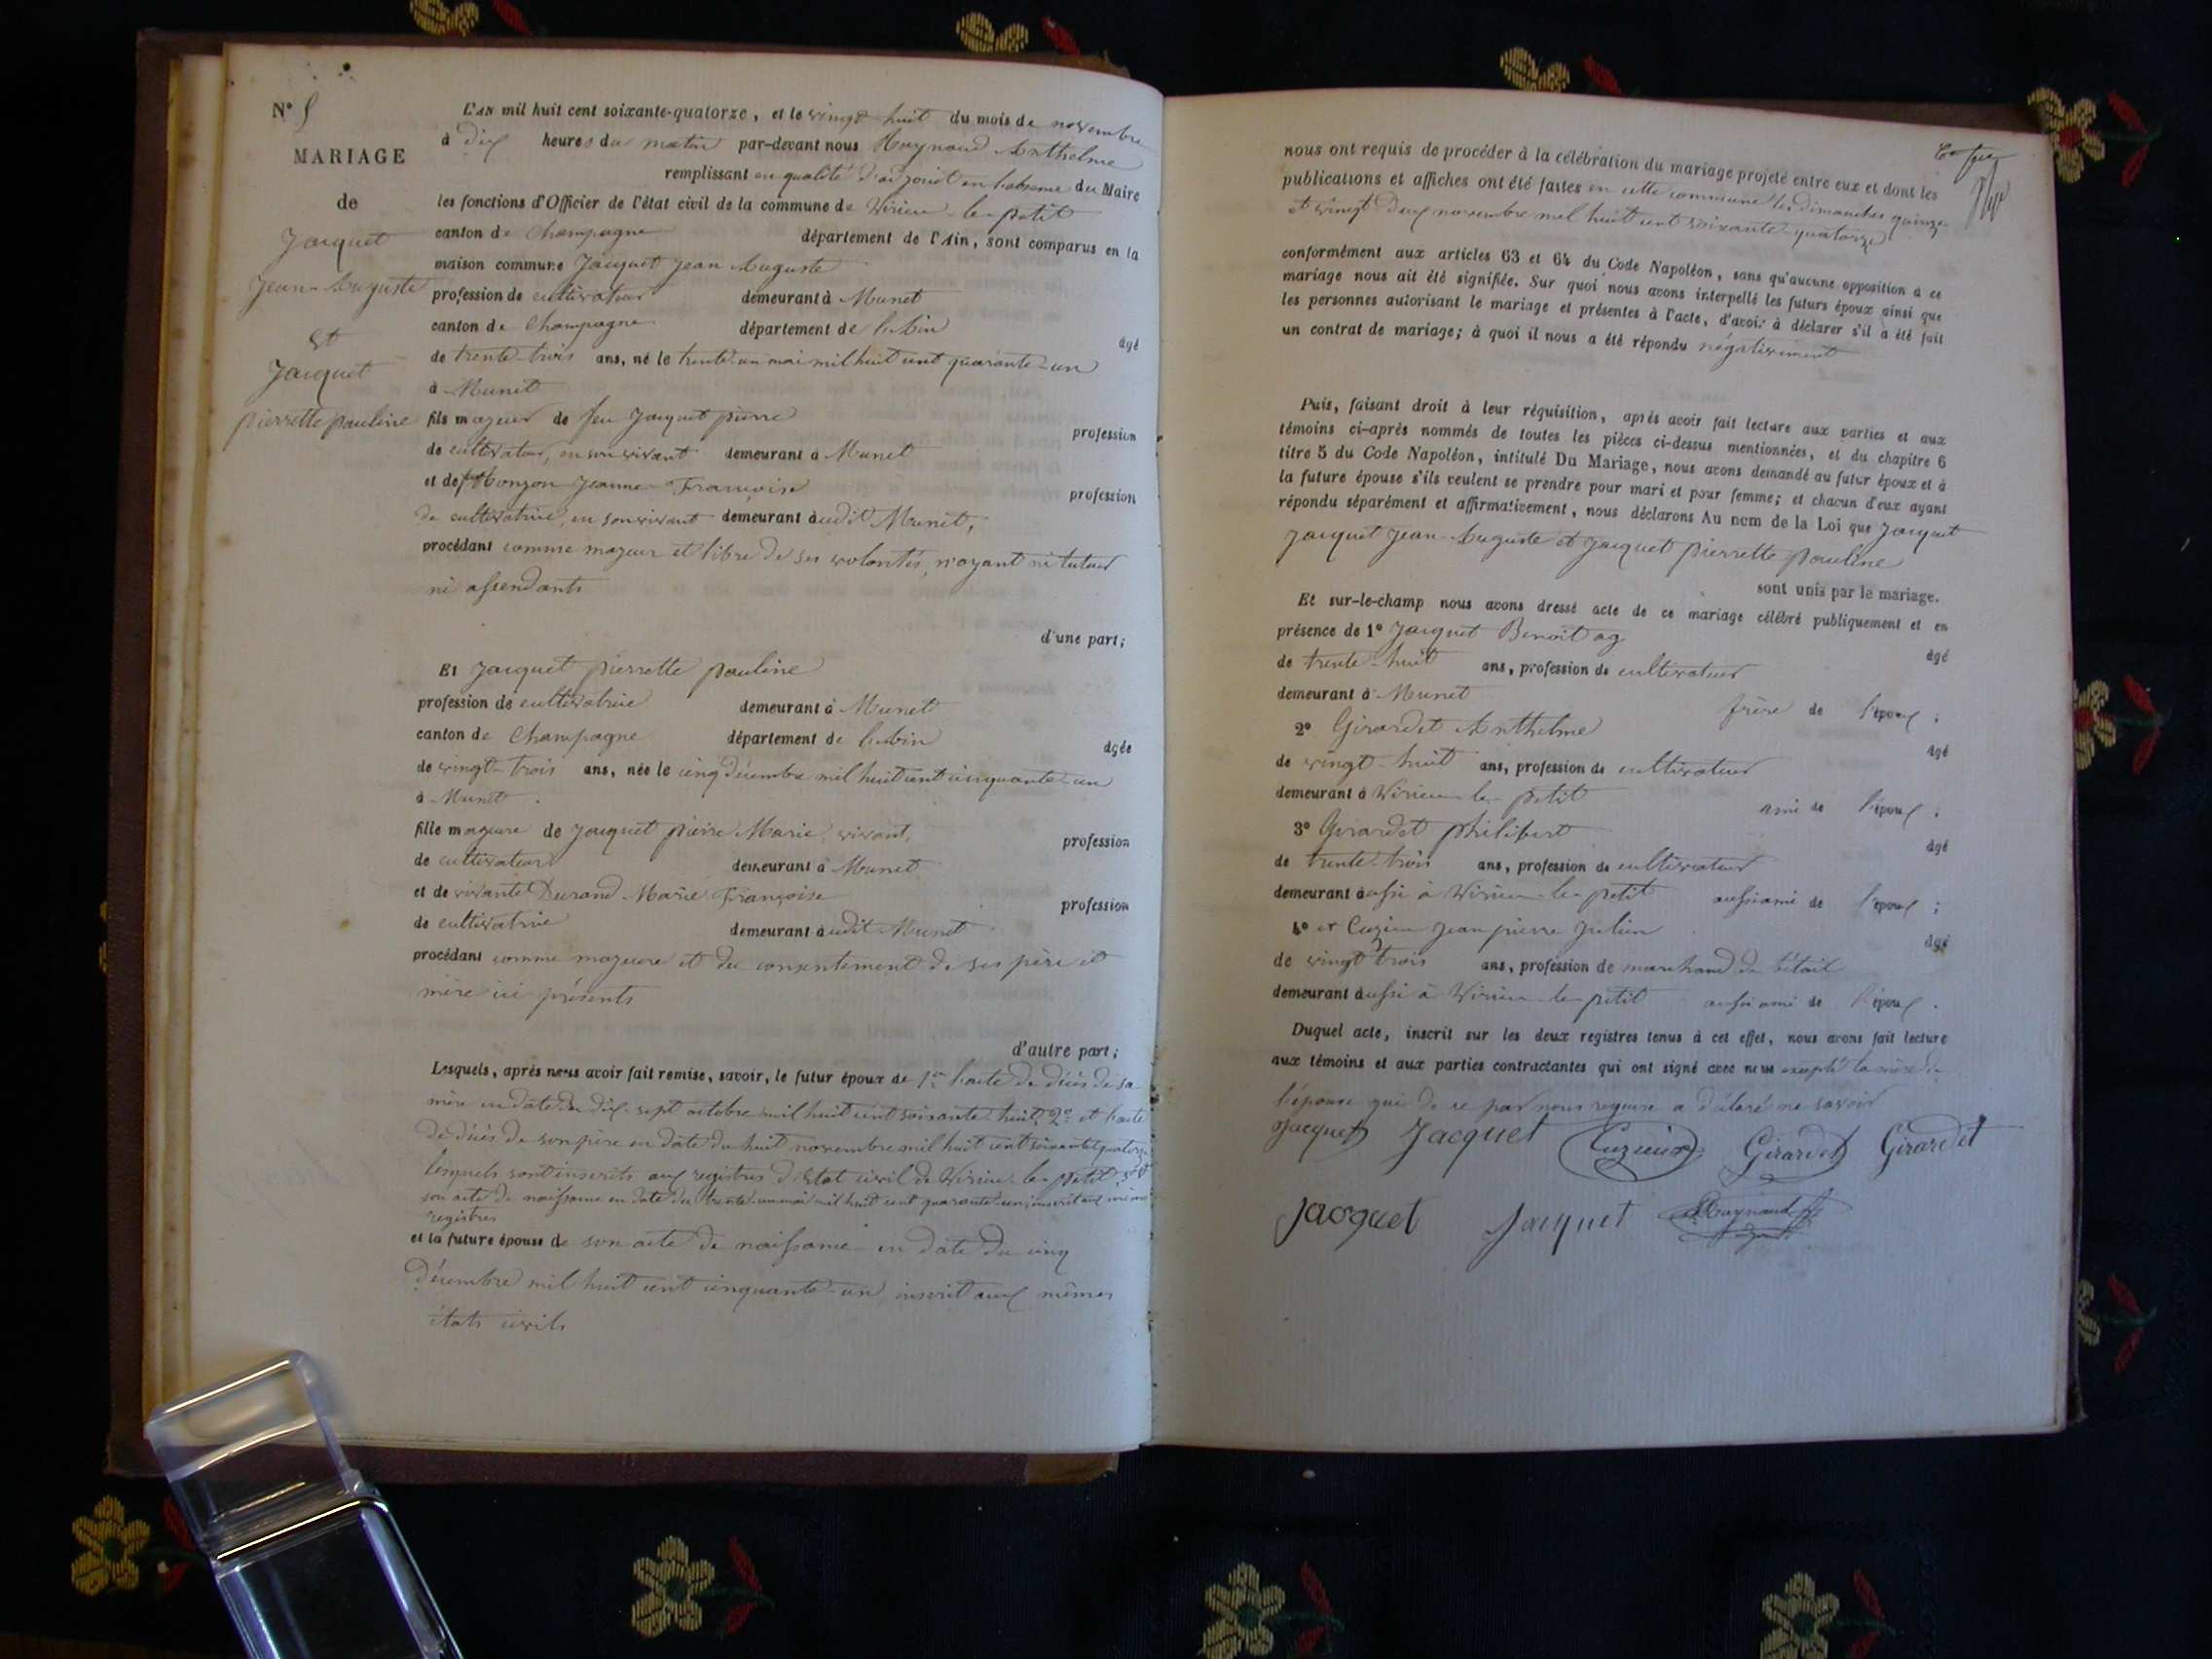 N° 5
MARIAGE
de
Jacquet
Jean-Auguste
et
Jacquet
pierrette pauline
L'AN mil huit cent soixante-quatorze, et le vingt-huit du mois de novembre
à dix heures du matin par-devant nous Raynaud Anthelme
remplissant en qualité d'adjoint en l'absence du Maire
les fonctions d'Officier de l'état civil de la commune de Virieu-le-petit
canton de Champagne département de l'Ain, sont comparus en la
maison commune Jacquet Jean Auguste
profession de cultivateur demeurant à Munet
canton de Champagne département de l'Ain âgé
de trente-trois ans, né le trente-un mai mil huit cent quarante-un
à Munet
fils majeur de feu Jacquet pierre profession
de cultivateur, en son vivant demeurant à Munet
et de Jeanne-Françoise profession
de cultivatrice, en son vivant demeurant audit Munet,
procédant comme majeur et libre de ses volontés, n'ayant ni tuteur
ni assendants
d'une part;
Et Jacquet pierrette pauline
profession de cultivatrice demeurant à Munet
canton de Champagne département de l'Ain âgée
de vingt-trois ans, née le cinq décembre mil huit cent cinquante-un
à Munet.
fille majeure de Jacquet pierre Marie, vivant, profession
de cultivateur demeurant à Munet
et de vivante Durand Marie Françoise profession
de cultivatrice demeurant audit Munet
procédant comme majeure et du consentement de ses père et
mère ici présents
d'autre part;
Lesquels, après nous avoir fait remise, savoir, le futur époux de 1er l'acte de décès de sa
mère en date du dix-sept octobre mil huit cent soixante-huit, 2° et l'acte
de décès de son père en date du huit novembre mil huit cent soixante quatorze
lesquels sont inscrits aux registres d'Etat civil de Virieu-le-petit, 3° et
son acte de naissance en date du trente-un mai mil huit cent quarante-un, inscrit aux mêmes
registres
et la future épouse de son acte de naissance en date du cinq
décembre mil huit cent cinquante-un, inscrit aux mêmes
états civils
nous ont requis de procéder à la célébration du mariage projeté entre eux et dont les
publications et affiches ont été faites en cette commune les dimanches quinze
et vingt-deux novembre mil huit cent soixante-quatorze
conformément aux articles 63 et 64 du Code Napoléon, sans qu'aucune opposition à ce
mariage nous ait été signifiée. Sur quoi nous avons interpellé les futurs époux ainsi que
les personnes autorisant le mariage et présentes à l'acte, d'avoir à déclarer s'il a été fait
un contrat de mariage; à quoi il nous a été répondu négativement
Puis, faisant droit à leur réquisition, après avoir fait lecture aux parties et aux
témoins ci-après nommés de toutes les pièces ci-dessus mentionnées, et du chapitre 6
titre 5 du Code Napoléon, intitulé Du Mariage, nous avons demandé au futur époux et à
la future épouse s'ils veulent se prendre pour mari et pour femme; et chacun d'eux ayant
répondu séparément et affirmativement, nous déclarons Au nom de la Loi que Jacquet
Jacquet Jean-Auguste et Jacquet pierrette pauline
sont unis par le mariage.
Et sur-le-champ nous avons dressé acte de ce mariage célébré publiquement et en
présence de 1° Jacquet Benoît ag âgé
de trente-huit ans, profession de cultivateur
demeurant à Munet frère de l'époux;
2° Girardet Anthelme âgé
de vingt-huit ans, profession de cultivateur
demeurant à Virieu-le-petit ami de l'époux;
3° Girardet philibert âgé
de trente-trois ans, profession de cultivateur
demeurant aussi à Virieu-le-petit aussi ami de l'époux;
4° et Cuzieu Jean pierre Julien âgé
de vingt trois ans, profession de marchand de bétail
demeurant aussi à Virieu-le-petit aussi ami de l'époux.
Duquel acte, inscrit sur les deux registres tenus à cet effet, nous avons fait lecture
aux témoins et aux parties contractantes qui ont signé avec nous excepté la mère de
l'épouse qui de ce par nous requise a déclaré ne savoir
Jacquet Jacquet Girardet Girardet
Jacquet Jacquet Raynaud